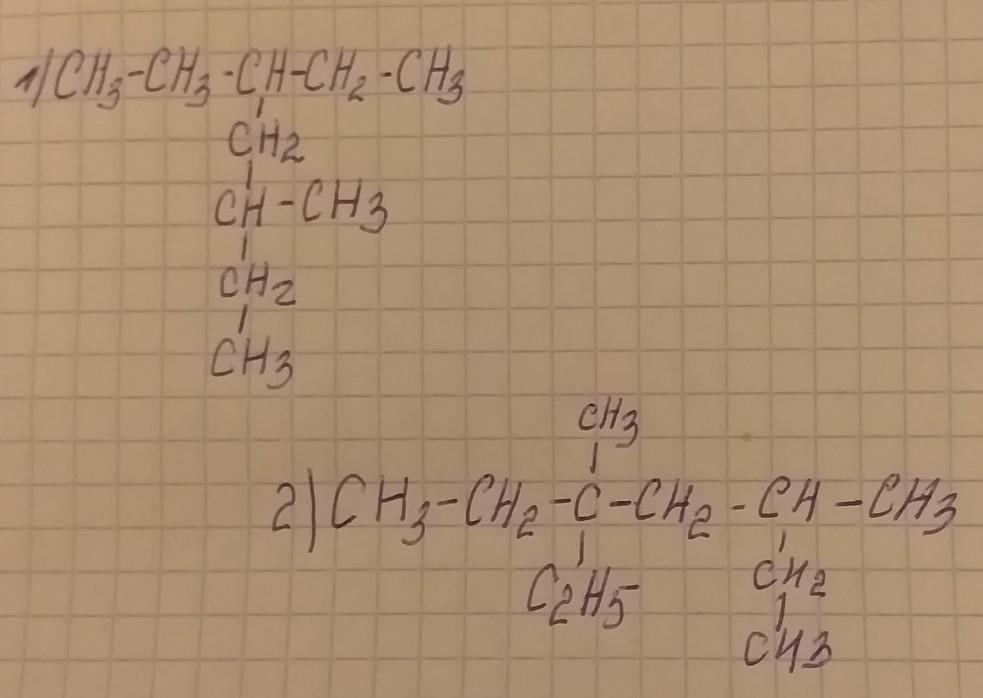 1) CH3-CH3-CH-CH2-CH3
CH2
CH-CH3
CH2
CH3
CH3
2) CH3-CH2-C-CH2-CH-CH3
C2H5 CH2
CH3